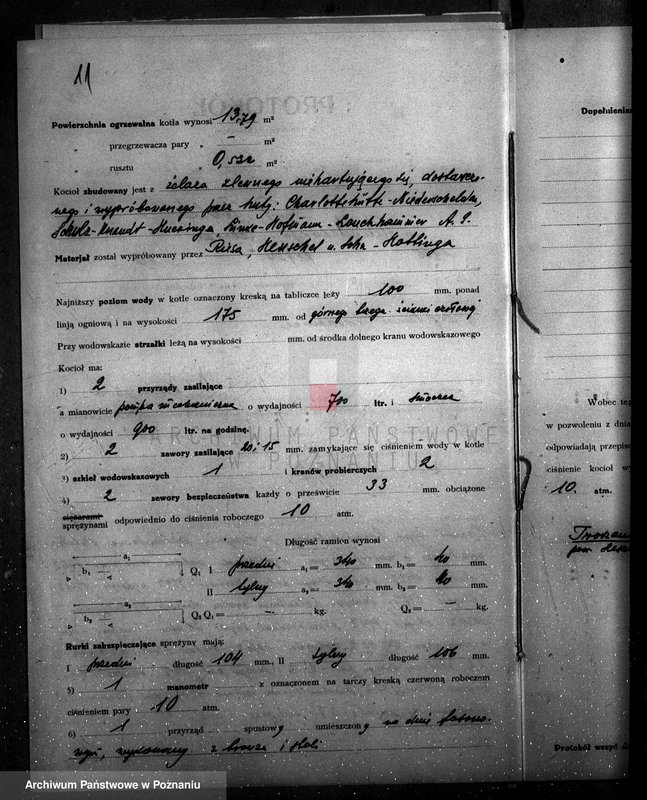 11
Powierzchnia ogrzewalna kotła wynosi 13,79 m²
" przegrzewacza pary " — m²
" rusztu " 0,532 m²
Kocioł zbudowany jest z żelaza zlewnego niehartującego się, dostarczo-
nego i wypróbowanego przez huty: Charlottehütte-Niederschelden,
Linke-Hofmann-Lauchhammer A. G.
Materjał został wypróbowany przez Henschel u. Sohn - Hattingen
Najniższy poziom wody w kotle oznaczony kreską na tabliczce leży 100 mm. ponad
linją ogniową i na wysokości 175 mm. od górnego brzegu ścianki czołowej
Przy wodowskazie strzałki leżą na wysokości mm. od środka dolnego kranu wodowskazowego
Kocioł ma:
1) 2 przyrządy zasilające
a mianowicie pompa mechaniczna o wydajności 700 ltr. i smoczek
o wydajności 900 ltr. na godzinę.
2) 2 zawory zasilające 20 i 15 mm. zamykające się ciśnieniem wody w kotle
3) szkieł wodowskazowych 1 i kranów probierczych 2
4) 2 zawory bezpieczeństwa każdy o prześwicie 33 mm. obciążone
ciężarami
sprężynami odpowiednio do ciśnienia roboczego 10 atm.
Długość ramion wynosi
a₁ b₁ Q₁ I przedni a₁ = 340 mm. b₁ = 40 mm.
II tylny a₂ = 340 mm. b₂ = 40 mm.
a₂ b₂ Q₂ Q₁ = — kg. Q₂ = — kg.
Rurki zabezpieczające sprężyny mają:
I przedni długość 104 mm., II tylny długość 106 mm.
5) 1 manometr z oznaczonem na tarczy kreską czerwoną roboczem
ciśnieniem pary 10 atm.
6) 1 przyrząd spustowy umieszczony na dnie
wykonany z bronzu i stali
Dopełnienia
Wobec teg
w pozwoleniu z dnia
odpowiadają przepiso
ciśnienie kocioł wy
10. atm.
Protokół wszyć do
ARCHIWUM PAŃSTWOWE
W POZNANIU
Archiwum Państwowe w Poznaniu